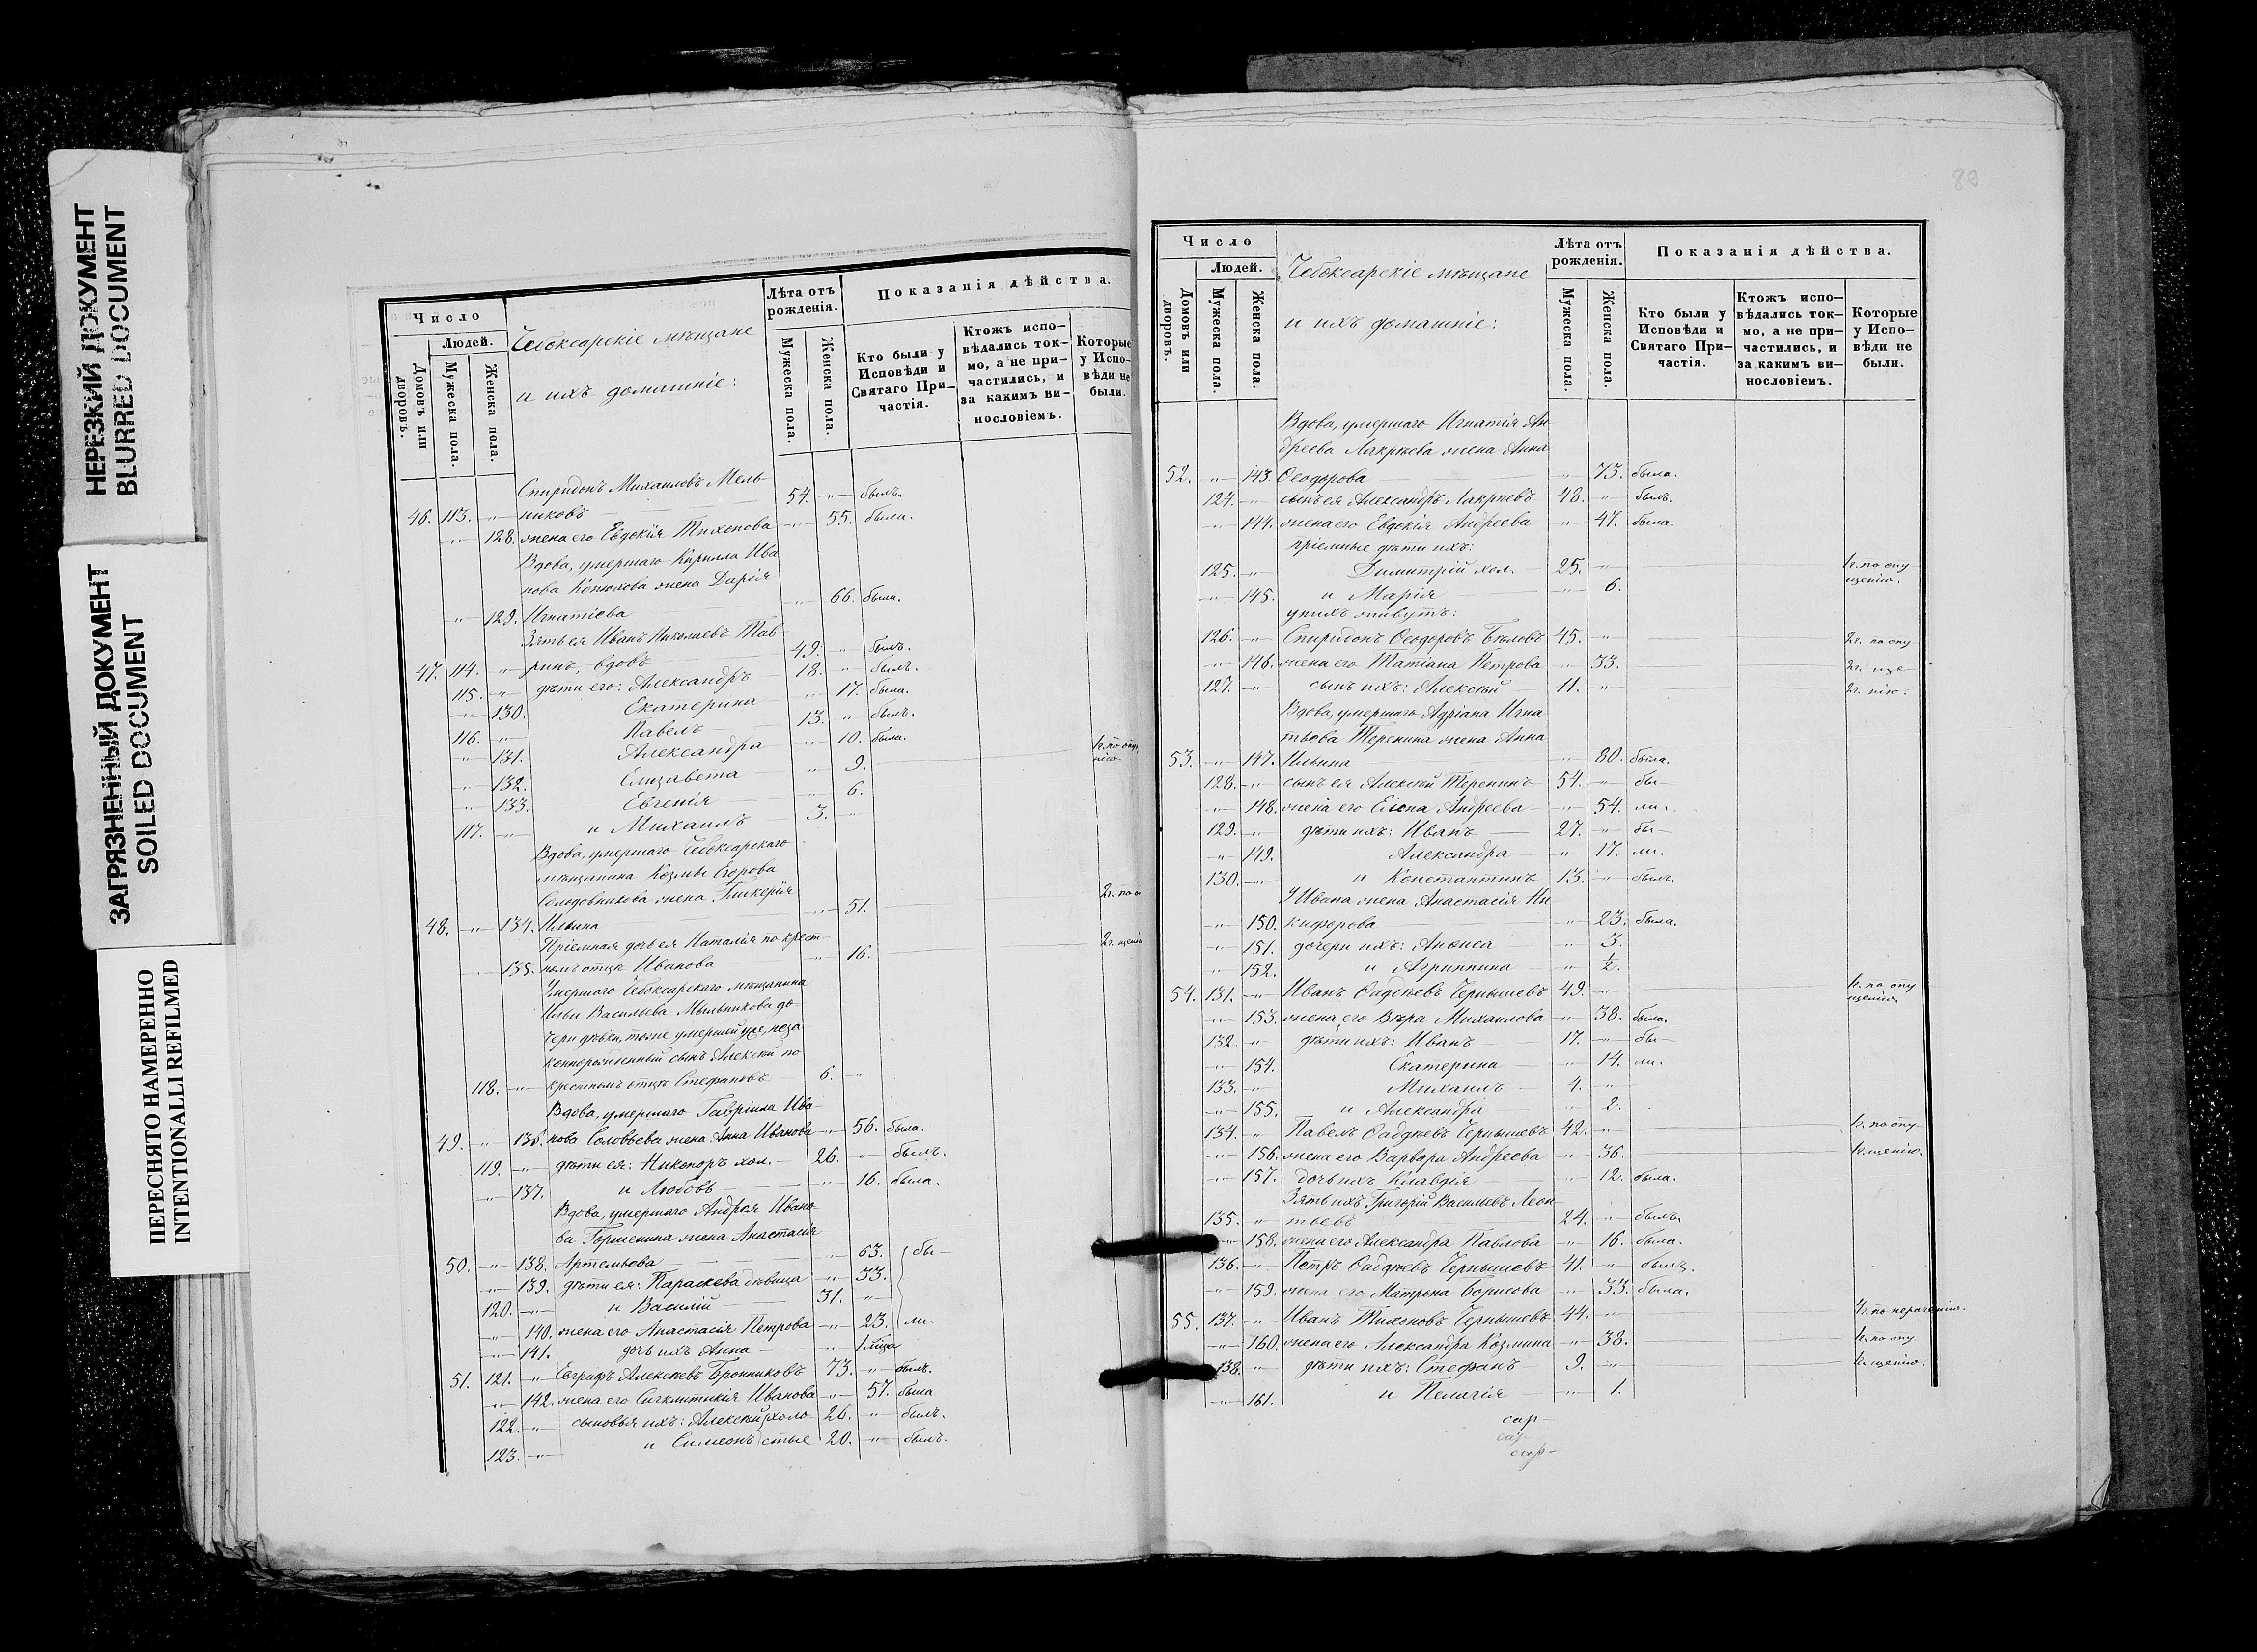 НЕРЕЗКИЙ ДОКУМЕНТ
BLURRED DOCUMENT
ЗАГРЯЗНЕННЫЙ ДОКУМЕНТ
SOILED DOCUMENT
ПЕРЕСНЯТО НАМЕРЕННО
INTENTIONALLI REFILMED
Число
Людей.
Домовъ или дворовъ.
Мужеска пола.
Женска пола.
Чебоксарскіе мѣщане
и ихъ домашніе:
Лѣта отъ рожденія.
Мужеска пола.
Женска пола.
Показанія дѣйства.
Кто были у Исповѣди и Святаго Причастія.
Ктожъ исповѣдались токмо, а не причастились, и за какимъ винословіемъ.
Которые у Исповѣди не были.
Спиридонъ Михаиловъ Мель
46. 113. -"- никовъ 54. -"- былъ.
-"- 128. жена его Евдокія Тихонова -"- 55. была.
Вдова, умершаго Кирилла Ива
нова Конюхова жена Дарія
-"- 129. Игнатіева -"- 66. была.
Зять ея Иванъ Николаевъ Тав
47. 114. -"- ринъ, вдовъ 49. " былъ.
115. -"- дѣти его: Александръ 18. " былъ.
-"- 130. Екатерина " 17. была.
116. -"- Павелъ 13. " былъ.
-"- 131. Александра " 10. была.
" 132. Елизавета " 9.
" 133. Евгенія " 6.
117. -"- и Михаилъ 3. "
Вдова, умершаго Чебоксарскаго
мѣщанина Козмы Егорова
Солодовникова жена Гликерія
48. -"- 134. Ильина -"- 51. 2г. по о
Пріемная дочь ея Наталія по крест-
-"- 135. номъ отцѣ Иванова " 16. 2г. щені
Умершаго Чебоксарскаго мѣщанина
Ильи Васильева Мыльникова до
чери дѣвки, тоже умершей уже, неза
коннорожденный сынъ Алексѣй по
118. -"- крестномъ отцѣ Стефановъ 6. -"-
Вдова, умершаго Гавріила Ива-
49. -"- нова Соловьева жена Анна Иванова -"- 56. была.
119. -"- дѣти ея: Никаноръ хол. 26. " былъ.
-"- 137. и Любовь -"- 16. была.
Вдова, умершаго Андрея Ивано
ва Горшенина жена Анастасія
50. -"- 138. Артемьева -"- 63. бы-
-"- 139. дѣти ея: Параскева дѣвица " 33.
120. -"- и Василій 31. -"-
-"- 140. жена его Анастасія Петрова -"- 23. ли.
-"- 141. дочь ихъ Анна -"-
51. 121. -"- Евграфъ Алексѣевъ Бронниковъ 73. -"- былъ.
-"- 142. жена его Сигклитикія Иванова -"- 57. была
122. -"- сыновья ихъ: Алексѣй холо 26. " былъ.
123. -"- и Симеонъ стые 20. -"- былъ.
Число
Людей.
Домовъ или дворовъ.
Мужеска пола.
Женска пола.
Чебоксарскіе мѣщане
и ихъ домашніе:
Лѣта отъ рожденія.
Мужеска пола.
Женска пола.
Показанія дѣйства.
Кто были у Исповѣди и Святаго Причастія.
Ктожъ исповѣдались токмо, а не причастились, и за какимъ винословіемъ.
Которые у Исповѣди не были.
Вдова, умершаго Игнатія Ан
дреева Лакрѣева жена Анна
52. -"- 143. Ѳеодорова " 73. была.
124. -"- сынъ ея Александръ Лакрѣевъ 48. -"- былъ.
-"- 144. жена его Евдокія Андреева -"- 47. была.
пріемные дѣти ихъ:
125. -"- Димитрій хол. 25. -"- 1г. по опу
щенію.
-"- 145. и Марія -"- 6.
у нихъ живутъ:
126. -"- Спиридонъ Ѳеодоровъ Бѣловъ 45. -"- 2г. по опу
-"- 146. жена его Татіана Петрова -"- 33. 2г. ще
127. -"- сынъ ихъ: Алексѣй 11. -"- 2г. нію.
Вдова, умершаго Адріана Игна
тьева Теренина жена Анна
53. -"- 147. Ильина " 80. была.
128. -"- сынъ ея Алексѣй Теренинъ 54. -"- бы-
-"- 148. жена его Елена Андреева -"- 54. ли.
129. -"- дѣти ихъ: Иванъ 27. -"- бы-
-"- 149. Александра -"- 17. ли.
130. -"- и Константинъ 13. -"- былъ.
У Ивана жена Анастасія Ни
-"- 150. кифорова -"- 23. была.
-"- 151. дочери ихъ: Анѳиса -"- 3.
-"- 152. и Агриппина -"- ½.
54. 131. -"- Иванъ Ѳаддѣевъ Чернышевъ 49. -"- 1г. по опу
щенію.
-"- 153. жена его Вѣра Михаилова -"- 38. была.
132. -"- дѣти ихъ: Иванъ 17. -"- бы-
-"- 154. Екатерина -"- 14. ли.
133. -"- Михаилъ 4. -"-
-"- 155. и Александра " 2.
134. -"- Павелъ Ѳаддѣевъ Чернышевъ 42. -"- 1г. по опу
-"- 156. жена его Варвара Андреева -"- 36. 1г. щенію.
-"- 157. дочь ихъ Клавдія -"- 12. была.
Зять ихъ Григорій Васильевъ Леон
135. -"- тьевъ 24. -"- былъ.
-"- 158. жена его Александра Павлова -"- 16. была.
136. -"- Петръ Ѳаддѣевъ Чернышевъ 41. -"- былъ.
-"- 159. жена его Матрона Борисова -"- 33. была.
55. 137. -"- Иванъ Тихоновъ Чернышевъ 44. -"-
-"- 160. жена его Александра Козмина -"- 38. 1г. по опу
138. -"- дѣти ихъ: Стефанъ 9. -"- 1г. щенію.
-"- 161. и Пелагія -"- 1.
сар-
сар
сар-